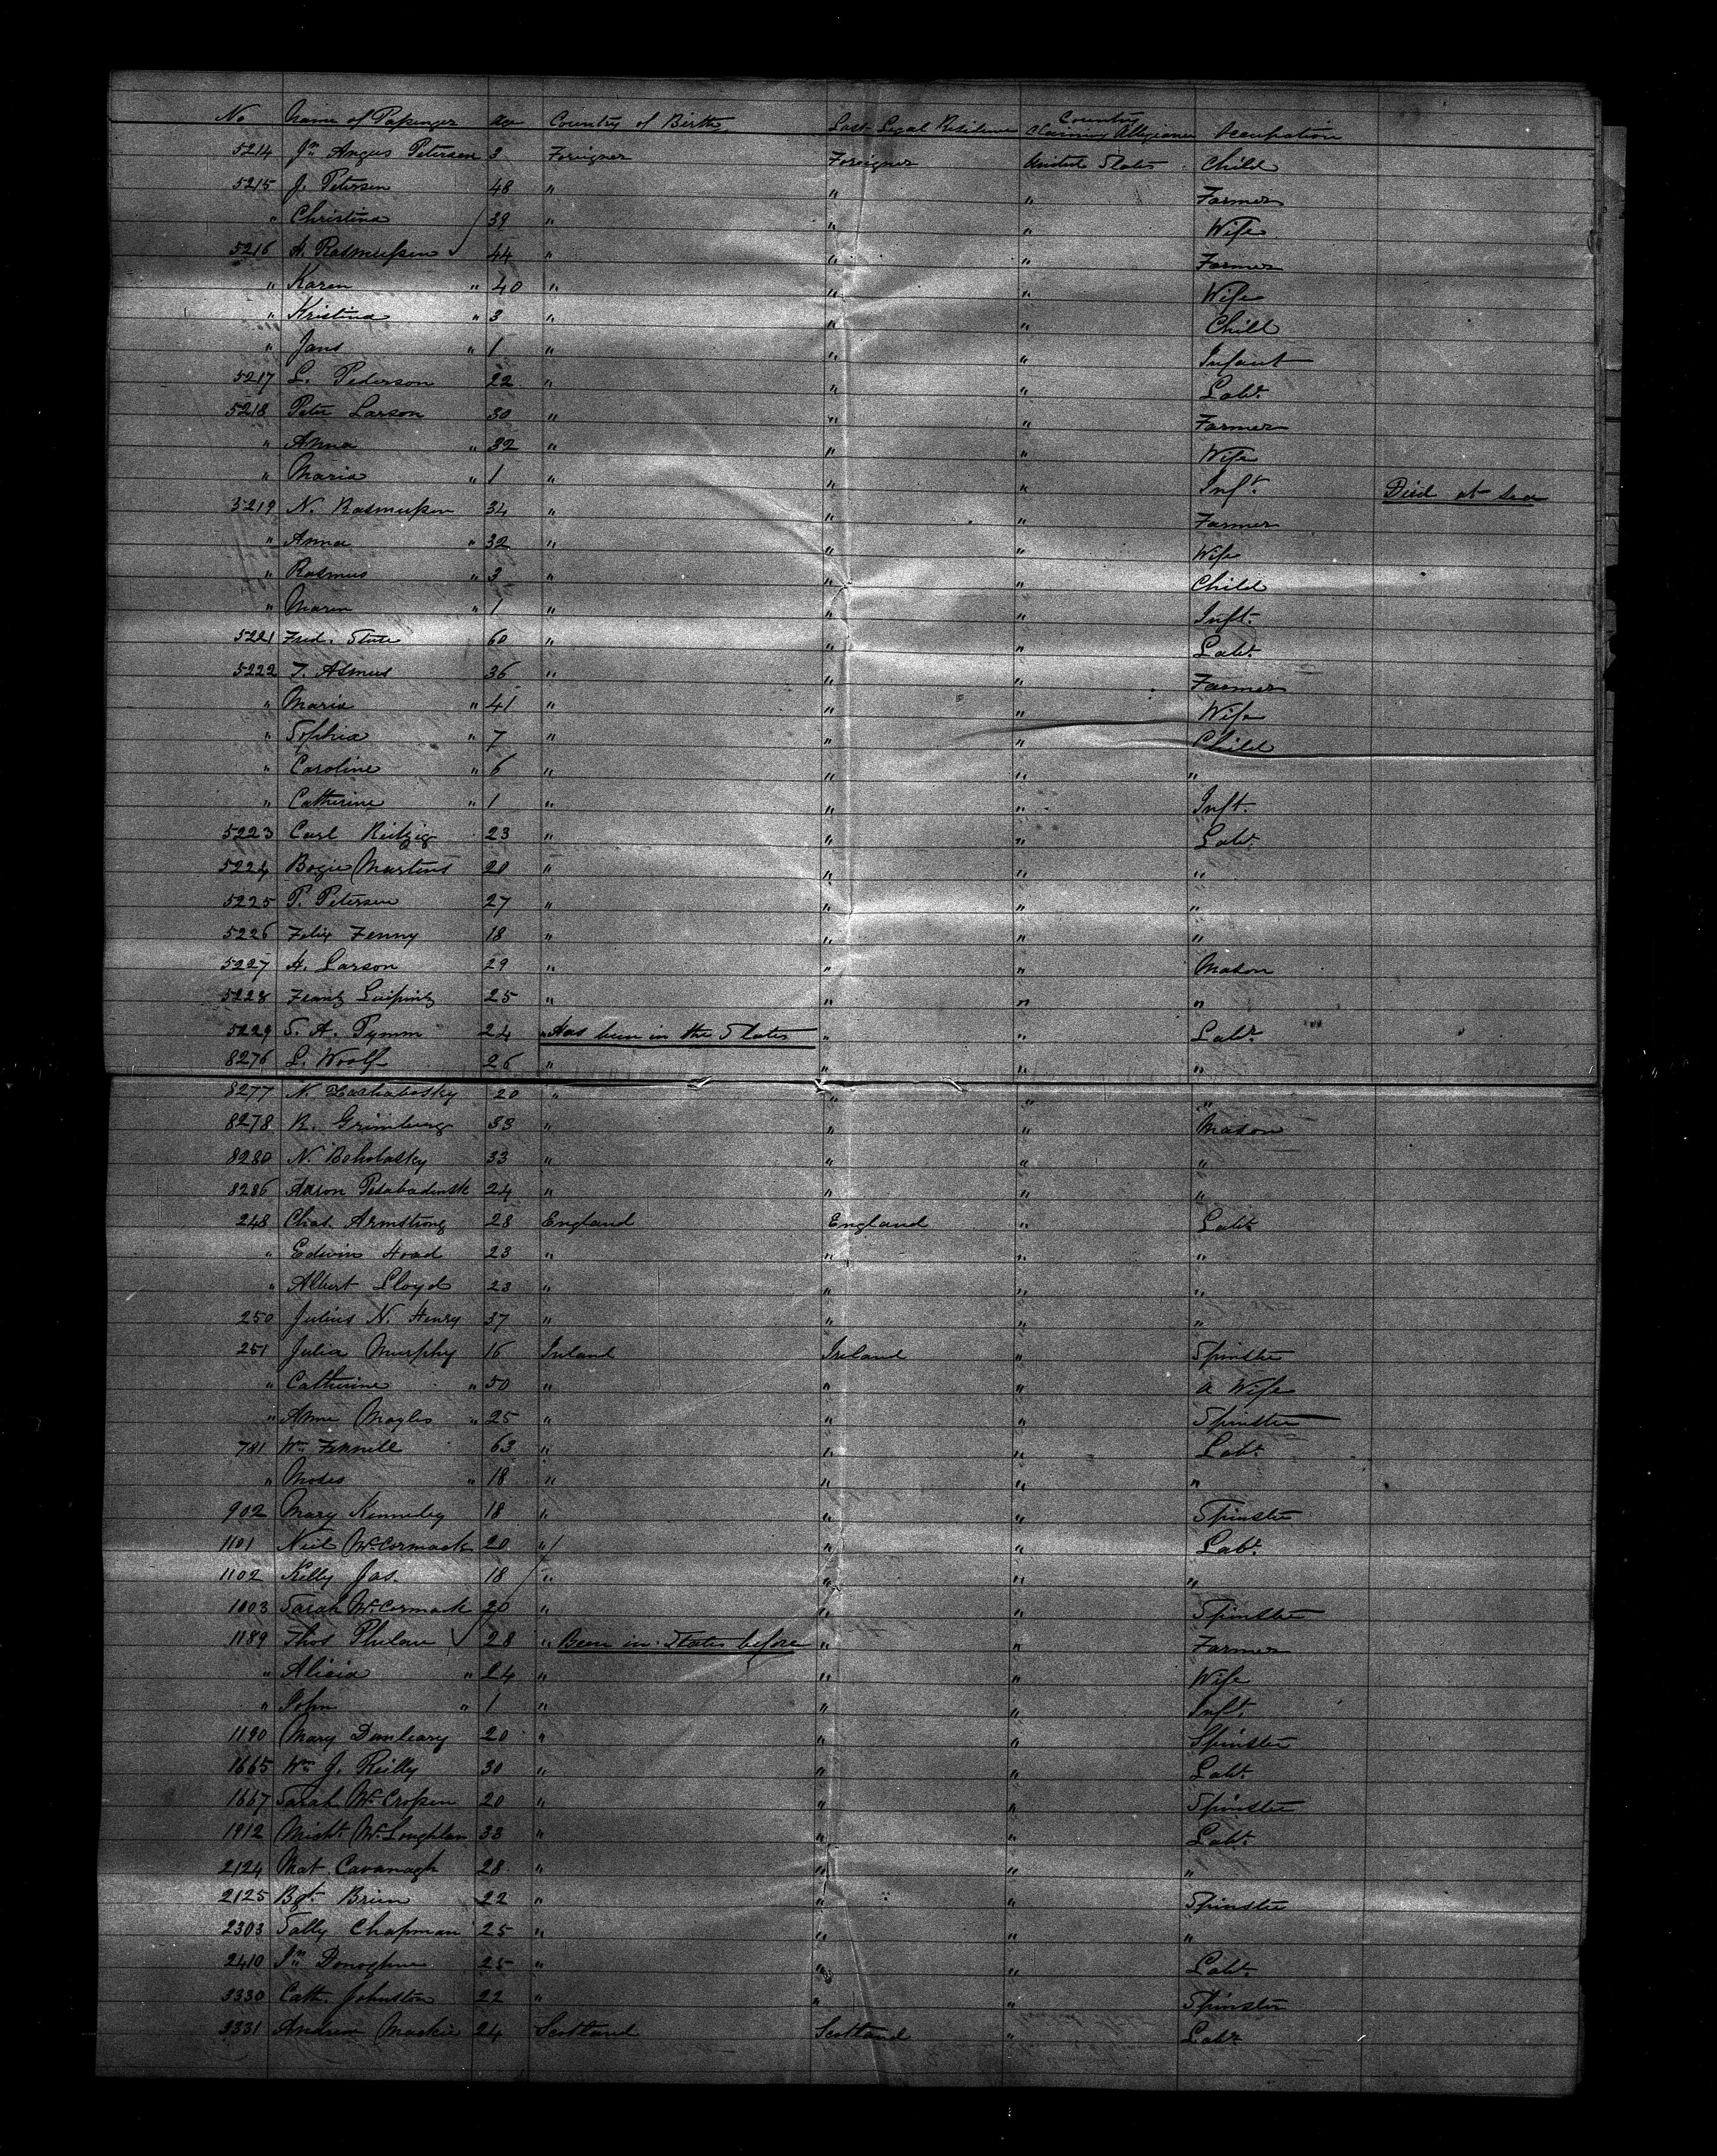 No Name of Passenger Age Country of Birth Last Legal Residence Country Claiming Allegiance Occupation
5214 Jn Angus Petersen 3 Foreigner Foreigner United States Child
5215 J. Petersen 48 " " " Farmer
" Christina 39 " " " Wife
5216 A. Rasmussen 44 " " " Farmer
" Karen " 40 " " " Wife
" Kristina " 3 " " " Child
" Jans " 1 " " " Infant
5217 L. Pederson 22 " " " Labr.
5218 Peter Larson 30 " " " Farmer
" Anna " 32 " " " Wife
" Maria " 1 " " " Inft. Died at sea
5219 N. Rasmussen 34 " " " Farmer
" Anna " 32 " " " Wife
" Rasmus " 3 " " " Child
" Maren " 1 " " " Inft.
5221 Fred. Stute 60 " " " Labr.
5222 T. Asmus 36 " " " Farmer
" Maria " 41 " " " Wife
" Sophia " 7 " " " Child
" Caroline " 6 " " " "
" Catherine " 1 " " " Inft.
5223 Carl Reitzig 23 " " " Labr.
5224 Bogie Martens 20 " " " "
5225 P. Petersen 27 " " " "
5226 Felix Fenny 18 " " " "
5227 A. Larson 29 " " " Mason
5228 Frantz 25 " " " "
5229 S. A. Tymm 24 " Has been in the States " " Labr.
8276 L. Woolf 26 " " " "
8277 N. Zachabosky 20 " " " "
8278 R. Grimberg 33 " " " Mason
8280 N. Boholasky 33 " " " "
8286 Aaron Pesabadinsk 24 " " " "
248 Chas. Armstrong 28 England England " Labr.
" Edwin Hoad 23 " " " "
" Albert Lloyd 23 " " " "
250 Julius N. Henry 37 " " " "
251 Julia Murphy 16 Ireland Ireland " Spinster
" Catherine " 50 " " " a Wife
" Anne Moyles " 25 " " " Spinster
781 Wm Fennell 63 " " " Labr.
" Moses " 18 " " " "
902 Mary Kennedy 18 " " " Spinster
1101 Neil McCormack 20 " " " Labr.
1102 Kelly Jas. 18 " " " "
1103 Sarah McCormack 20 " " " Spinster
1189 Thos Phelan 28 " Been in States before " " Farmer
" Alicia " 24 " " " Wife
" John " 1 " " " Inft.
1190 Mary Dunleary 20 " " " Spinster
1665 Wm J. Reilly 30 " " " Labr.
1667 Sarah McCrossen 20 " " " Spinster
1912 Michl. McLoughlan 33 " " " Labr.
2124 Mat. Cavanagh 28 " " " "
2125 Bgt. Brien 22 " " " Spinster
2303 Sally Chapman 25 " " " "
2410 Jn Donoghue 25 " " " Labr.
3330 Cath. Johnston 22 " " " Spinster
3331 Andrew Mackie 24 Scotland Scotland " Labr